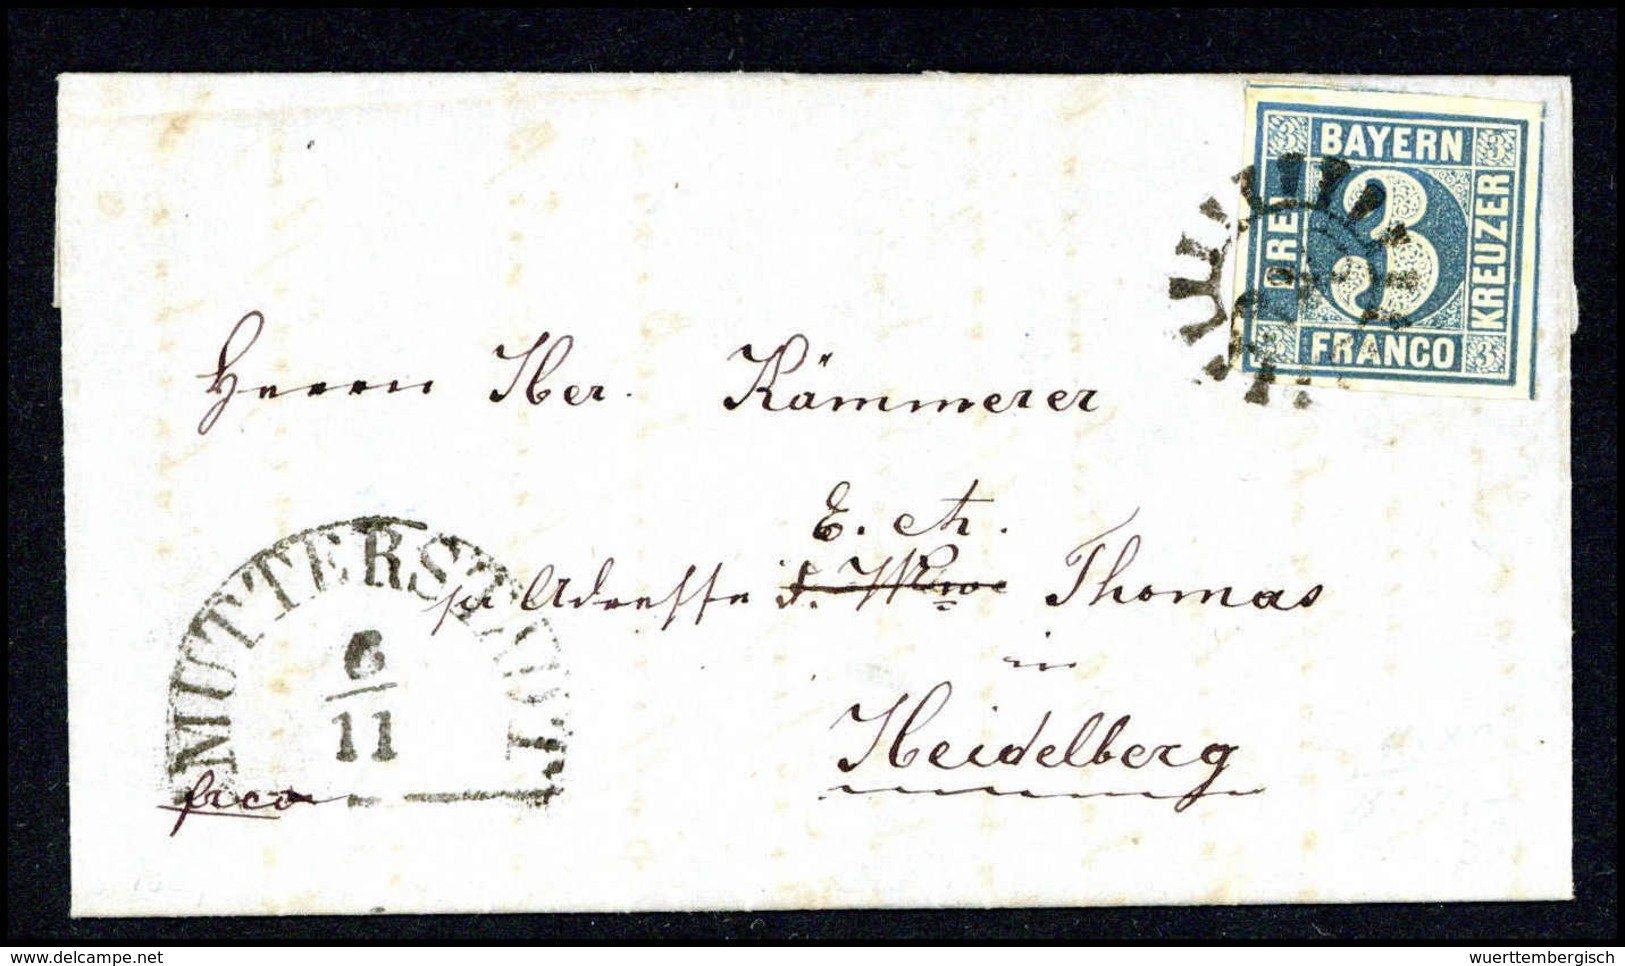 BAYERN
3 3
DREI
3
KREUZER
FRANCO
3 3
Herrn Her. Kämmerer
E. ch.
pr Adresse Thomas
in
Heidelberg
MUTTERSTADT.
6
11
frco
delcampe.net
wuerttembergisch